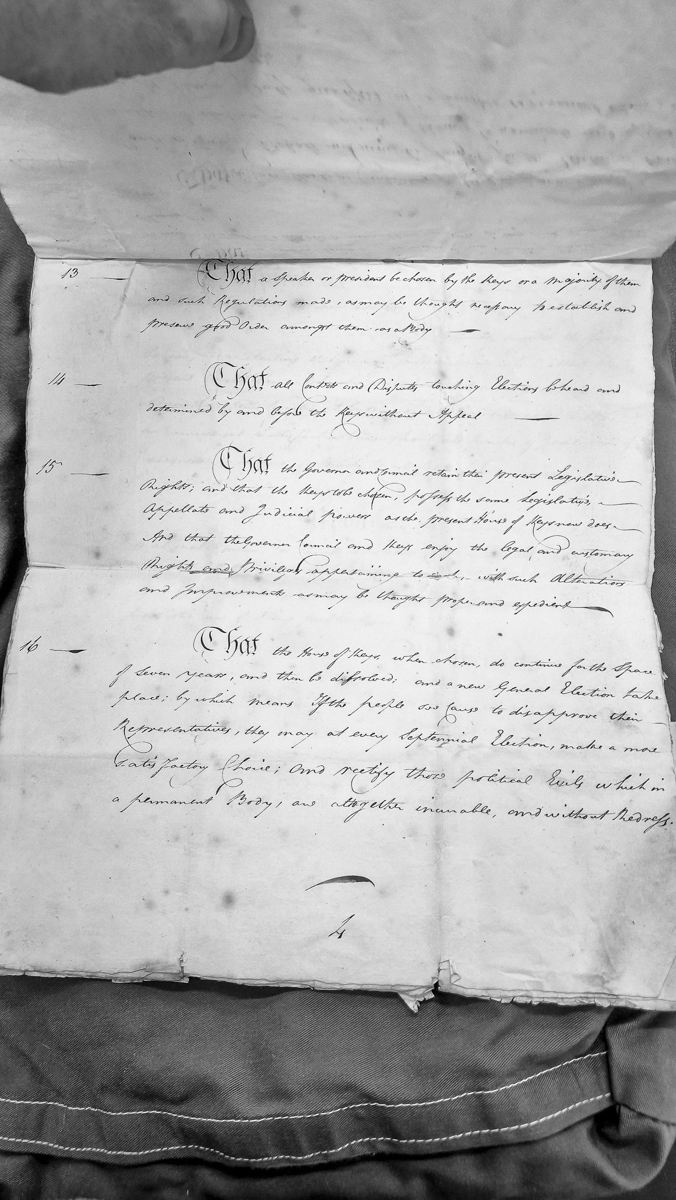 13 — That a Speaker or president be chosen by the Keys or a Majority of them
and such Regulations made, as may be thought necessary to establish and
preserve good Order amongst them as a Body —
14 — That all Contests and Disputes touching Elections be heard and
determined by and before the Keys without Appeal —
15 — That the Governor and Council retain their present Legislative
Rights; and that the Keys to be chosen, possess the same Legislative,
Appellate and Judicial powers as the present House of Keys now does —
And that the Governor Council and Keys enjoy the legal and customary
Rights and Privileges appertaining to with such Alterations
and Improvements as may be thought proper and expedient —
16 — That the House of Keys, when chosen, do continue for the Space
of Seven years, and then be dissolved; and a new General Election take
place; by which means If the people see Cause to disapprove their
Representatives, they may at every Septennial Election, make a more
Satisfactory Choice; and rectify those political Evils which in
a permanent Body, are altogether incurable, and without Redress.
4